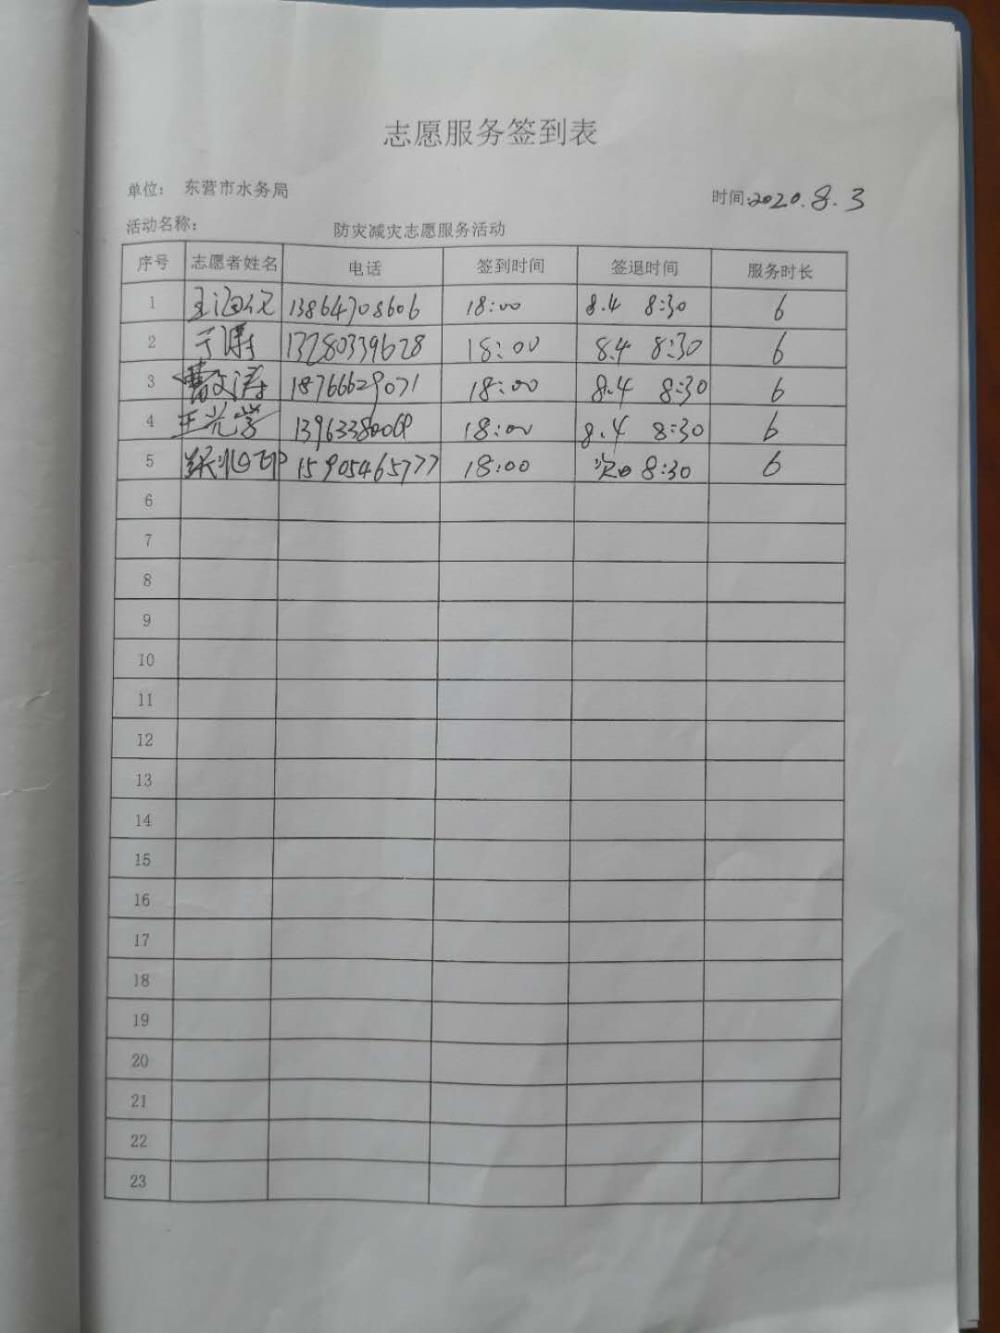 志愿服务签到表
单位： 东营市水务局 时间:2020.8.3
活动名称： 防灾减灾志愿服务活动
序号 志愿者姓名 电话 签到时间 签退时间 服务时长
1 13864708606 18:00 8.4 8:30 6
2 于涛 13280339628 18:00 8.4 8:30 6
3 曹文涛 18766629071 18:00 8.4 8:30 6
4 王光学 18:00 8.4 8:30 6
5 15905465777 18:00 次日 8:30 6
6
7
8
9
10
11
12
13
14
15
16
17
18
19
20
21
22
23